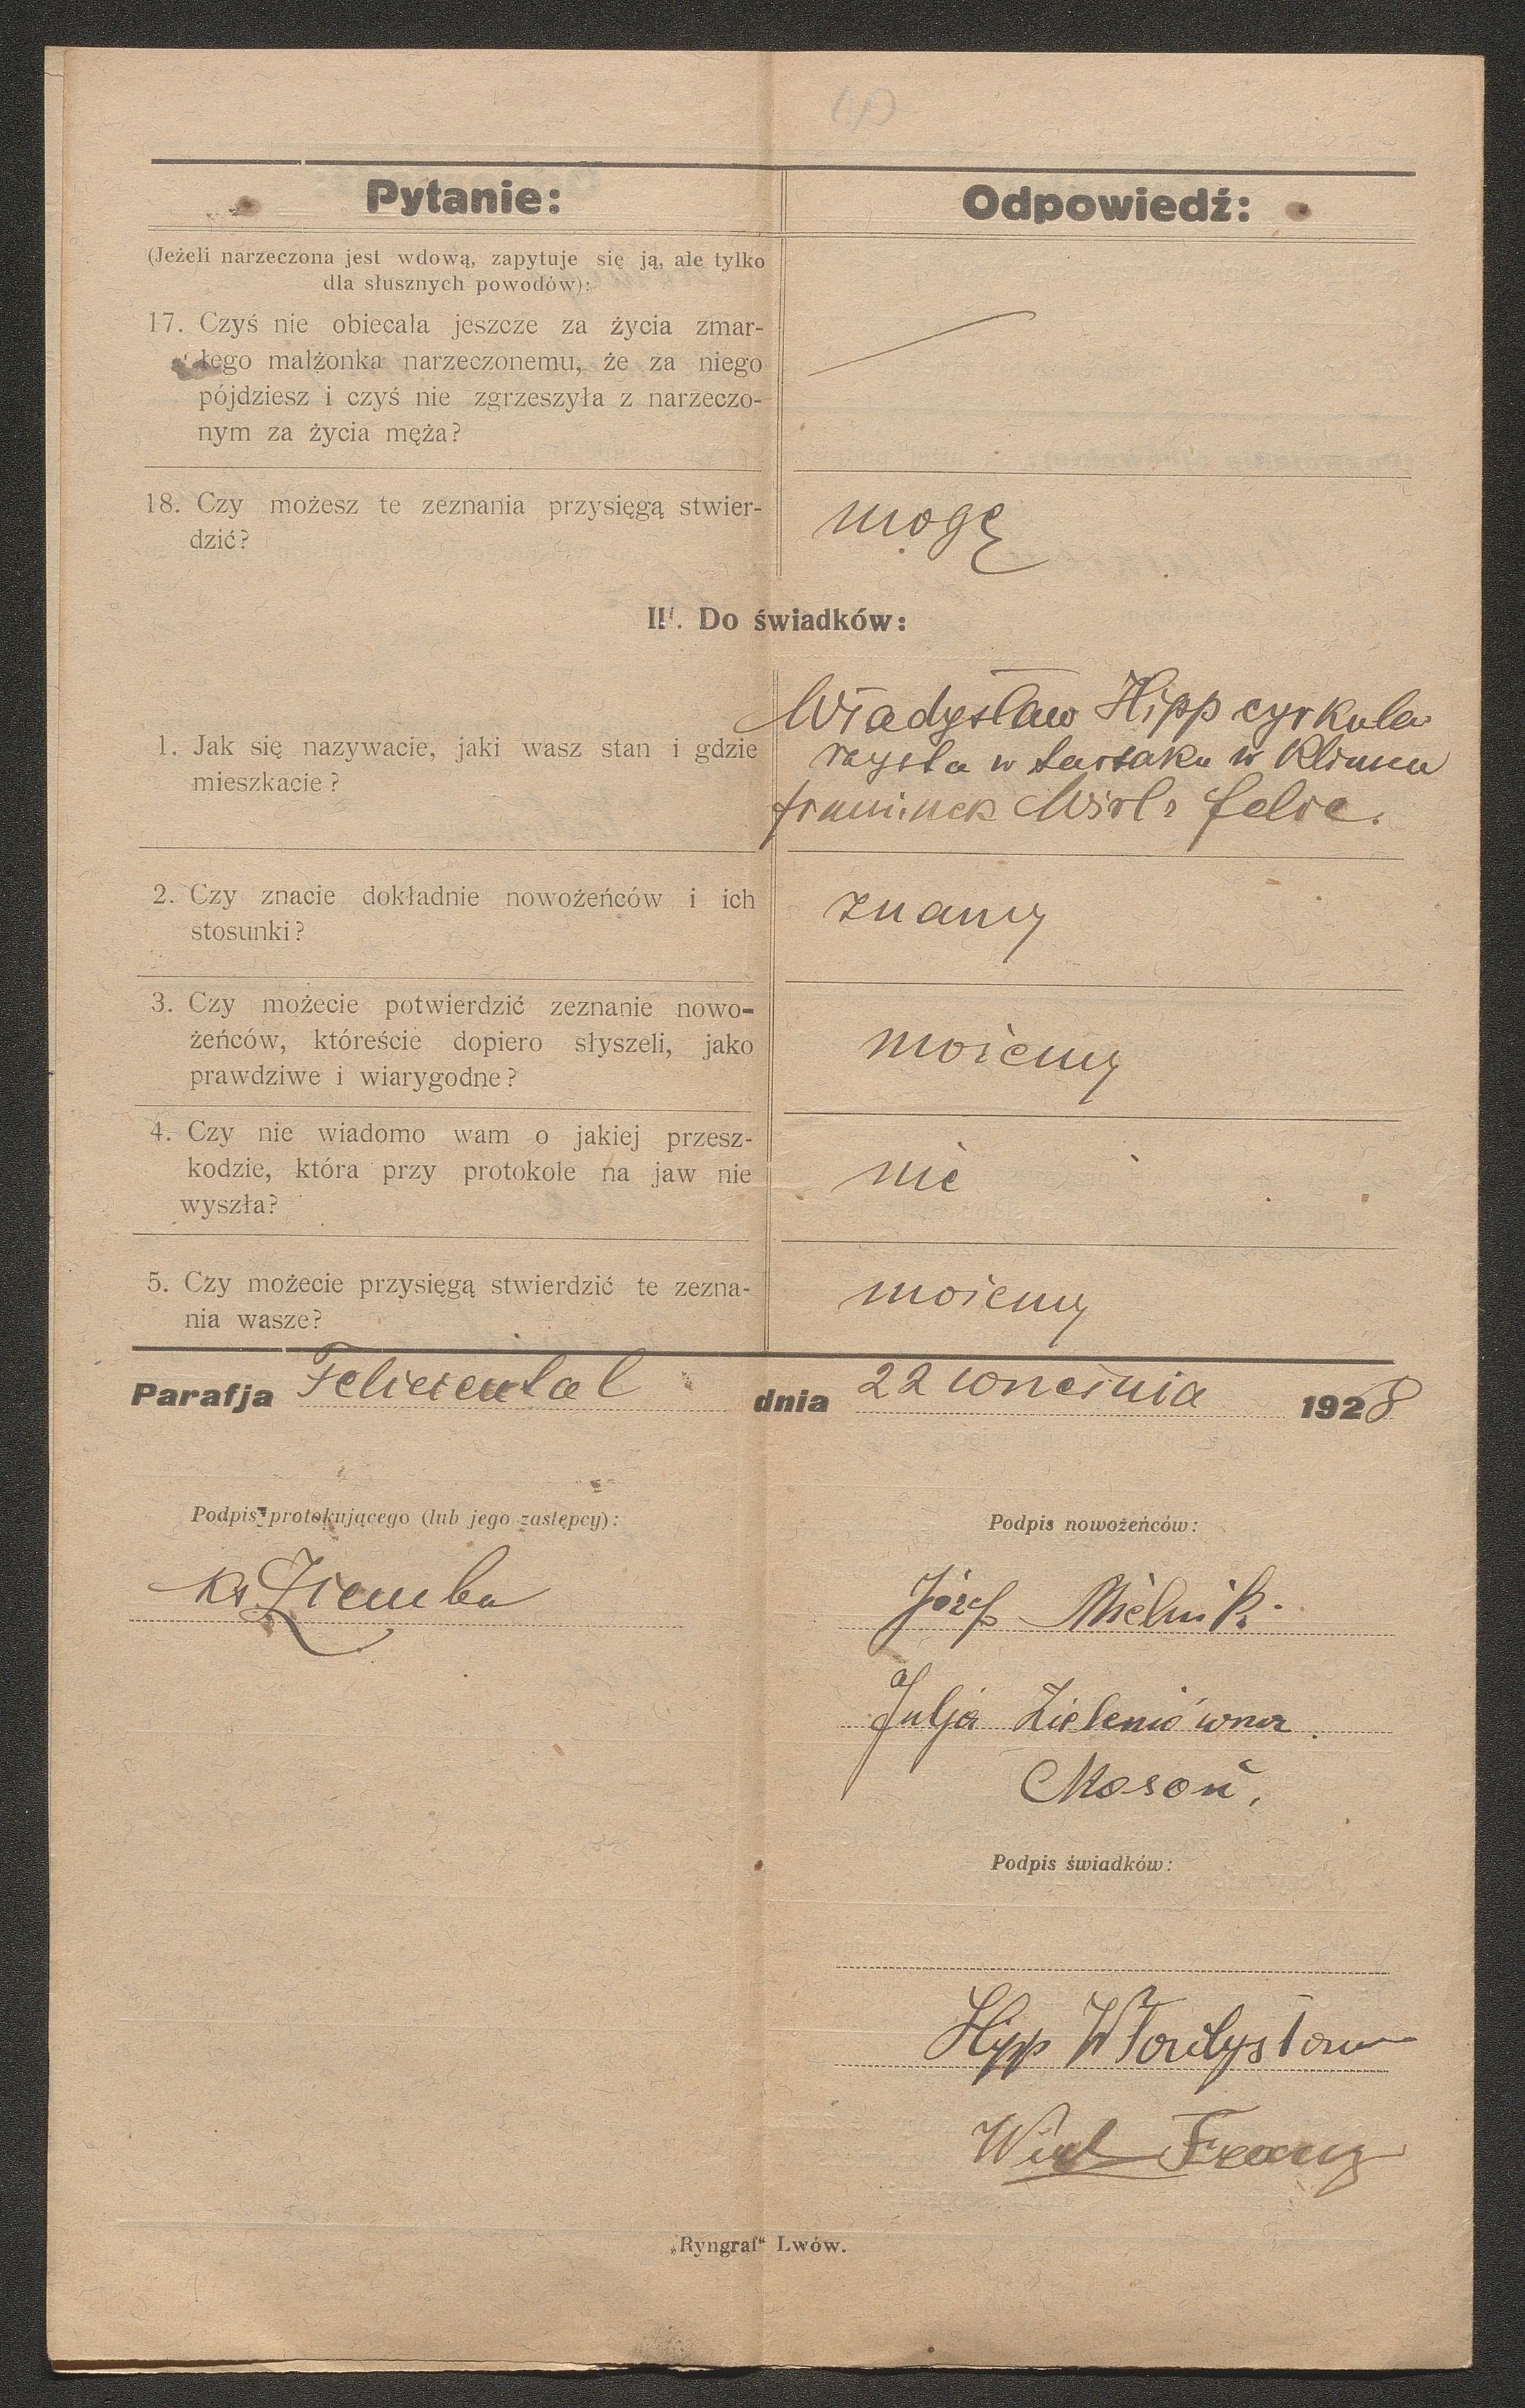 Pytanie:
Odpowiedź:
(Jeżeli narzeczona jest wdową, zapytuje się ją, ale tylko
dla słusznych powodów):
17. Czyś nie obiecala jeszcze za życia zmar-
łego małżonka narzeczonemu, że za niego
pójdziesz i czyś nie zgrzeszyła z narzeczo-
nym za życia męża?
18. Czy możesz te zeznania przysięgą stwier-
dzić?
mogę
III. Do świadków:
1. Jak się nazywacie, jaki wasz stan i gdzie
mieszkacie?
Władysław Hipp cyrkula
rzysta w tartaku w
2. Czy znacie dokładnie nowożeńców i ich
stosunki?
znamy
3. Czy możecie potwierdzić zeznanie nowo-
żeńców, któreście dopiero słyszeli, jako
prawdziwe i wiarygodne?
możemy
4. Czy nie wiadomo wam o jakiej przesz-
kodzie, która przy protokole na jaw nie
wyszła?
nie
5. Czy możecie przysięgą stwierdzić te zezna-
nia wasze?
możemy
Parafja Feliciental dnia 22 września 1928
Podpis protokującego (lub jego zastępcy):
ks Ziemba
Podpis nowożeńców:
Józef Mielnik.
Julja Zieleniówna
Mosoń.
Podpis świadków:
Hipp Władysław
Wirl Franz
„Ryngraf“ Lwów.